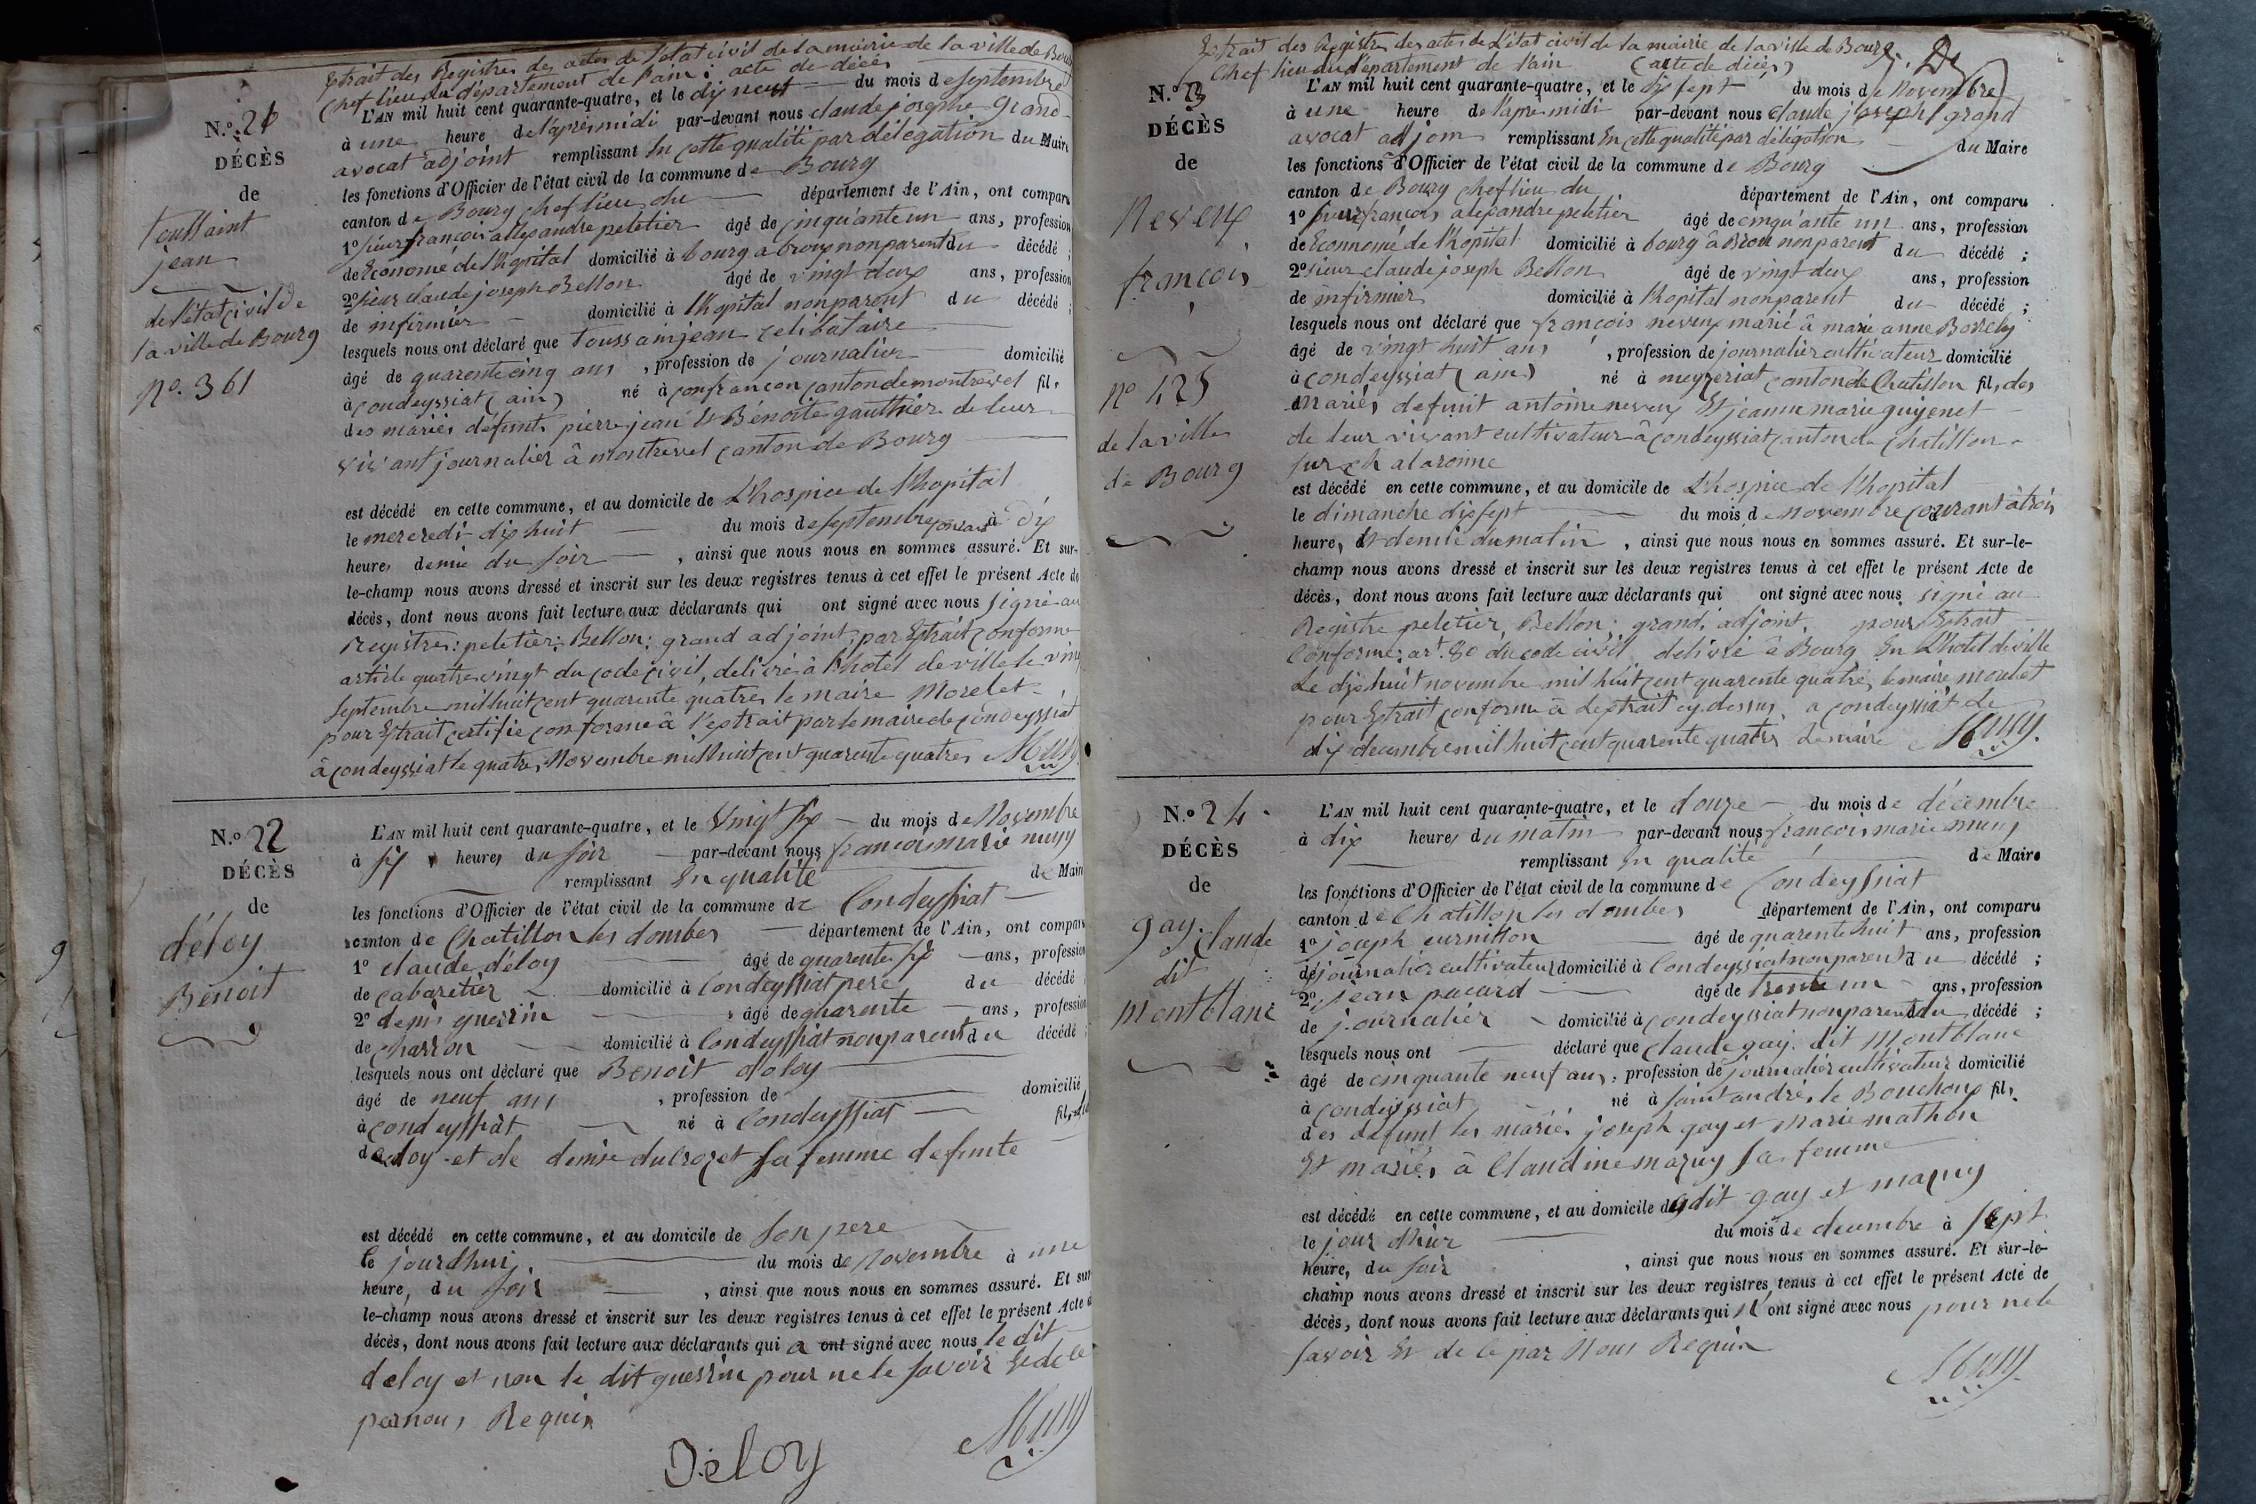 Extrait des Registres des actes de l'état civil de la mairie de la ville de Bourg
chef lieu du département de l'ain : acte de décès
N.º 21
DÉCÈS
de
toussaint
jean
de l'état civil de
la ville de Bourg
nº. 361
L'AN mil huit cent quarante-quatre, et le dix neuf du mois de septembre
à une heure de l'après midi par-devant nous claude josephe grand
avocat adjoint remplissant En cette qualité par délégation du Maire
les fonctions d'Officier de l'état civil de la commune de Bourg
canton de Bourg chef lieu du département de l'Ain, ont comparu
1º sieur françois allexandre peletier âgé de cinquante un ans, profession
de Econome de l'hopital domicilié à bourg a brou non parent du décédé ;
2º sieur claude joseph Bellon âgé de vingt deux ans, profession
de infirmier domicilié à l'hopital non parent du décédé ;
lesquels nous ont déclaré que toussain jean celibataire
âgé de quarente cinq ans , profession de journalier domicilié
à condeyssiat (ain) né à confrancon canton de montrevel fils
des mariés défunts pierre jean Et Bénoite gauthier de leur
vivant journalier à montrevel canton de Bourg
est décédé en cette commune, et au domicile de L'hospice de l'hopital
le mercredi dix huit du mois de septembre courant à dix
heures demie du soir , ainsi que nous nous en sommes assuré. Et sur-
le-champ nous avons dressé et inscrit sur les deux registres tenus à cet effet le présent Acte de
décès, dont nous avons fait lecture aux déclarants qui ont signé avec nous signé au
registres : peletier : Bellon : grand adjoint, par Extrait conforme
article quatre vingt du code civil, delivré à l'hotel de ville le vingt
septembre mil huit cent quarente quatre, le maire Morelet
pour Extrait certifie conforme à l'extrait par le maire de condeyssiat
à condeyssiat le quatre Novembre mil huit cent quarente quatre Muny
N.º 22
DÉCÈS
de
déloy
Benoit
L'AN mil huit cent quarante-quatre, et le Vingt six du mois de Novembre
à six heures du soir par-devant nous françois marie muny
remplissant En qualité de Maire
les fonctions d'Officier de l'état civil de la commune de Condeyssiat
canton de Chatillon les dombes département de l'Ain, ont comparu
1º claude déloy âgé de quarente six ans, profession
de cabaretier domicilié à Condeyssiat pere du décédé
2º denis guerrin âgé de quarente ans, profession
de charron domicilié à Condeyssiat non parent du décédé ;
lesquels nous ont déclaré que Benoit deloy
âgé de neuf ans , profession de domicilié
à condeyssiat né à Condeyssiat fils
deloy et de denise ducrozet sa femme defunte
est décédé en cette commune, et au domicile de son pere
le jourdhui du mois de Novembre à une
heure, du soir , ainsi que nous nous en sommes assuré. Et sur
le-champ nous avons dressé et inscrit sur les deux registres tenus à cet effet le présent Acte de
décès, dont nous avons fait lecture aux déclarants qui a ont signé avec nous le dit
deloy et non le dit guerrin pour ne le savoir Et de ce
par nous Requis
Déloy Muny
Extrait des Registres des actes de l'état civil de la mairie de la ville de Bourg
Chef lieu du département de l'ain (acte de décès)
N.º 23
DÉCÈS
de
Neveux
françois
nº 425
de la ville
de Bourg
L'AN mil huit cent quarante-quatre, et le dix sept du mois de Novembre
à une heure de l'après midi par-devant nous claude joseph grand
avocat adjoin remplissant En cette qualité par délégation du Maire
les fonctions d'Officier de l'état civil de la commune de Bourg
canton de Bourg chef lieu du département de l'Ain, ont comparu
1º sieur françois alexandre peletier âgé de cinquante un ans, profession
de Econnome de l'hopital domicilié à bourg à Brou non parent du décédé ;
2º sieur claude joseph Bellon âgé de vingt deux ans, profession
de infirmier domicilié à l'hopital non parent du décédé ;
lesquels nous ont déclaré que françois neveux marié à marie anne
âgé de vingt huit ans , profession de journalier cultivateur domicilié
à condeyssiat (ain) né à meyzeriat canton de Chatillon fils des
Mariés defunt antoine neveux Et jeanne marie guyenet
de leur vivant cultivateur à condeyssiat canton de chatillon
sur chalaronne
est décédé en cette commune, et au domicile de L'hospice de l'hopital
le dimanche dix sept du mois de Novembre courant à trois
heure, Et demie du matin , ainsi que nous nous en sommes assuré. Et sur-le-
champ nous avons dressé et inscrit sur les deux registres tenus à cet effet le présent Acte de
décès, dont nous avons fait lecture aux déclarants qui ont signé avec nous signé au
Registre peletier, Bellon : grand, adjoint. pour Extrait
Conforme : art. 80 du code civil. délivré à Bourg En L'hotel de ville
Le dix huit novembre mil huit cent quarente quatre, le maire morelet
pour Extrait conforme à Lextrait cy dessus a condeyssiat le
dix decembre mil huit cent quarente quatre Le maire Muny
N.º 24
DÉCÈS
de
gay. Claude
dit
montblanc
L'AN mil huit cent quarante-quatre, et le douze du mois de décembre
à dix heures du matin par-devant nous françois marie muny
remplissant En qualité de Maire
les fonctions d'Officier de l'état civil de la commune de Condeyssiat
canton de Chatillon les dombes département de l'Ain, ont comparu
1º joseph curnillon âgé de quarente huit ans, profession
de journalier cultivateur domicilié à Condeyssiat non parent du décédé ;
2º jean pacard âgé de trente un ans, profession
de journalier domicilié à condeyssiat non parent du décédé ;
lesquels nous ont déclaré que claude gay. dit Montblanc
âgé de cinquante neuf ans, profession de journalier cultivateur domicilié
à condeyssiat né à saint andré, le Bouchoux fils
des defunt les mariés joseph gay et marie mathon
Et marié, à Claudine mazuy sa femme
est décédé en cette commune, et au domicile dudit gay et mazuy
le jour dhier du mois de decembre à sept
heure, du soir , ainsi que nous nous en sommes assuré. Et sur-le-
champ nous avons dressé et inscrit sur les deux registres tenus à cet effet le présent Acte de
décès, dont nous avons fait lecture aux déclarants qui ont signé avec nous pour ne le
savoir Et de ce par Nous Requis
Muny